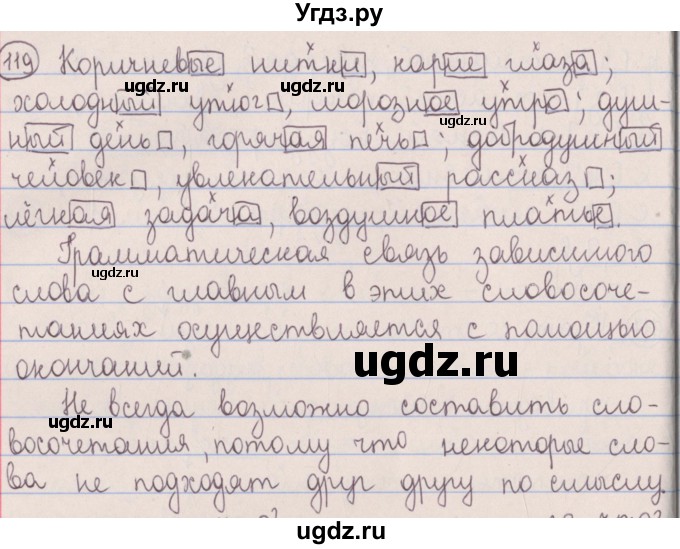 Угдз.ру
119 Коричневые нитки, карие глаза;
ugdz.ru ugdz.ru
холодный утюг, морозное утро; душ-
ugdz.ru
ный день, горячая печь; добродушный
человек, увлекательный рассказ;
лёгкая задача, воздушное платье.
Грамматическая связь зависимого
ugdz.ru
слова с главным в этих словосоче-
таниях осуществляется с помощью
окончаний.
ugdz.ru
Не всегда возможно составить сло-
восочетания, потому что некоторые сло-
ва не подходят друг другу по смыслу.
ugdz.ru ugdz.ru
ugdz.ru